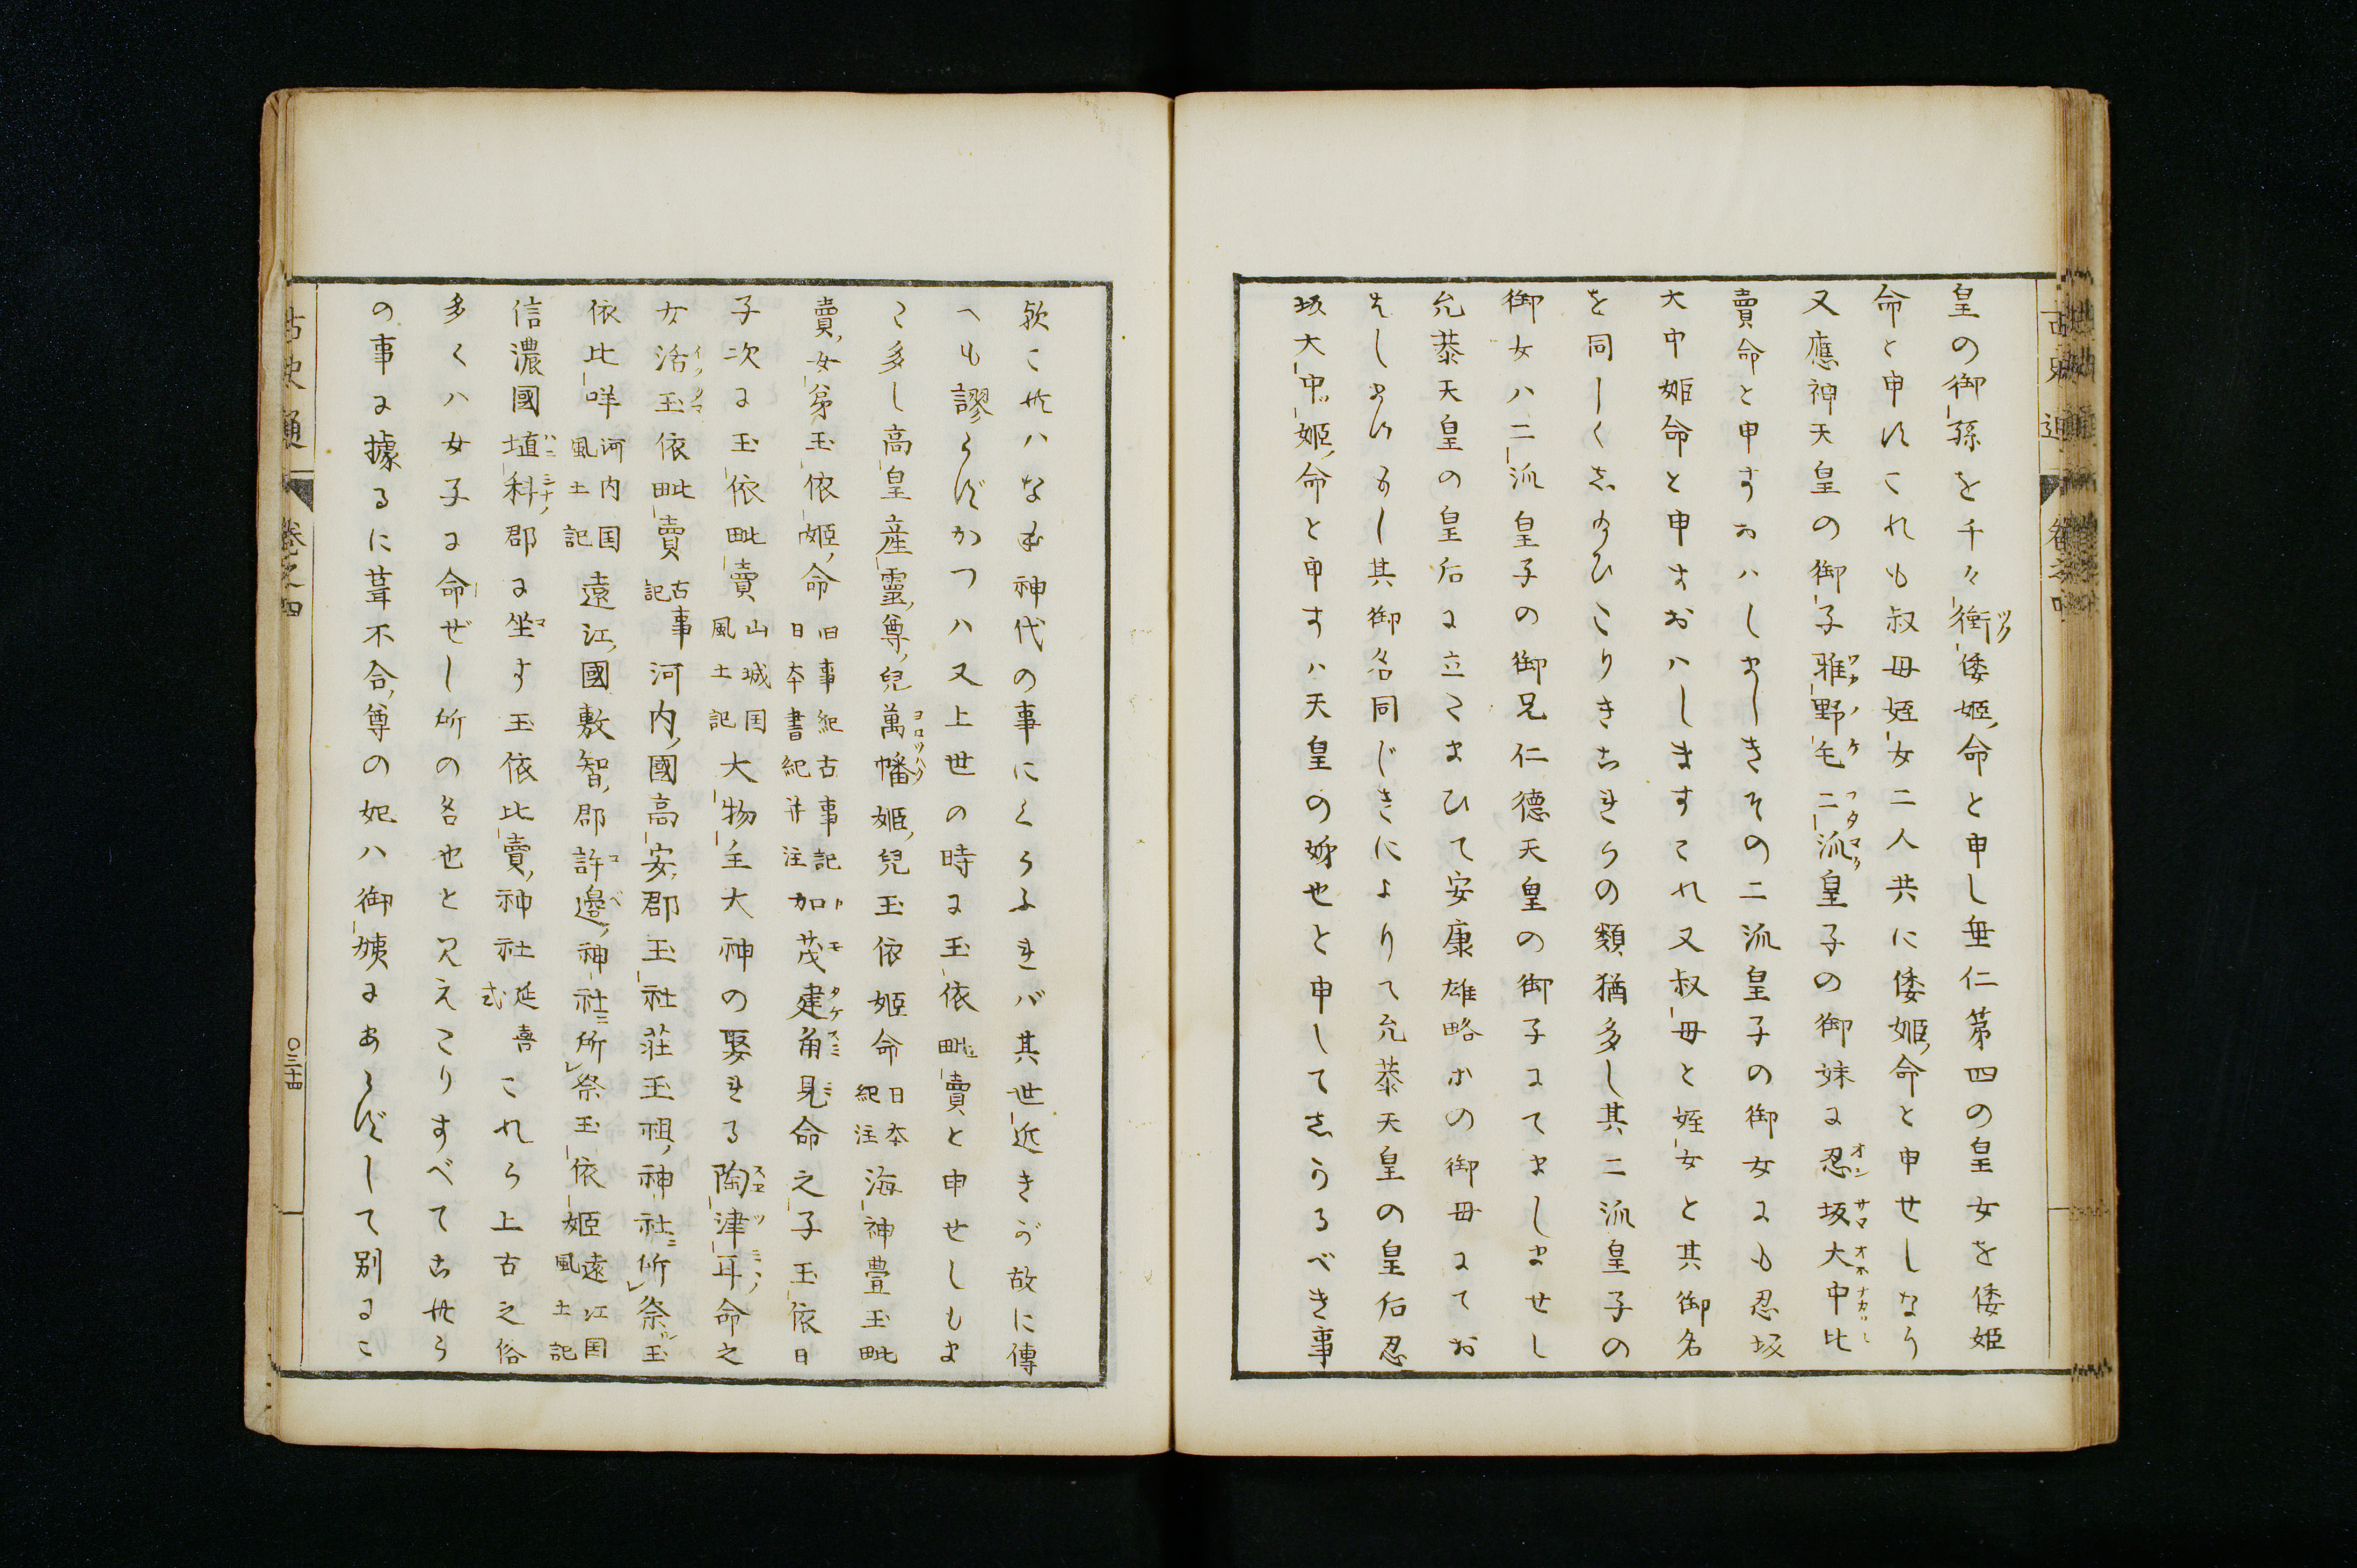 皇の御孫を千々衝倭姫命と申し垂仁第四の皇女を倭姫
命と申すこれも叔母姪女二人共に倭姫命と申せしなり
又應神天皇の御子雅野毛二派皇子の御妹に忍坂大中比
賣命と申すおハしましきその二派皇子の御女にも忍坂
大中姫命と申すおハしますこれ又叔母と姪女と其御名
を同しくし給ひたりきこれらの類猶多し其二派皇子の
御女ハ二派皇子の御兄仁德天皇の御子にてましませし
允恭天皇の皇后に立たまひて安康雄略等の御母にてお
はしまいけりし其御名同じきによりて允恭天皇の皇后忍
坂大中姫命と申すハ天皇の姊也と申してしうるべき事
歟これハなほ神代の事にくらふれバ其世近きが故に傳
へも謬らずかつハ又上世の時に玉依毗賣と申せしもま
た多し高皇産靈尊兒萬幡姫兒玉依姫命日本紀注海神豊玉毗
賣女弟玉依姫命旧事紀古事記日本書紀并注加茂建角見命之子玉依日
子次に玉依毗賣山城国風土記大物主大神の娶れる陶津耳命之
女活玉依毗賣古事記河内國高安郡玉社荘玉祖神社所祭玉
依比咩河内国風土記遠江國敷智郡許邊神社所祭玉依姫遠江国風土記
信濃國埴科郡に坐す玉依比賣神社延喜式これら上古之俗
多くハ女子に命ぜし所の名也と見えたりすべてこれら
の事に據るに葺不合尊の妃ハ御姨にあらずして別にこ
古史通
卷之四
〇三十四